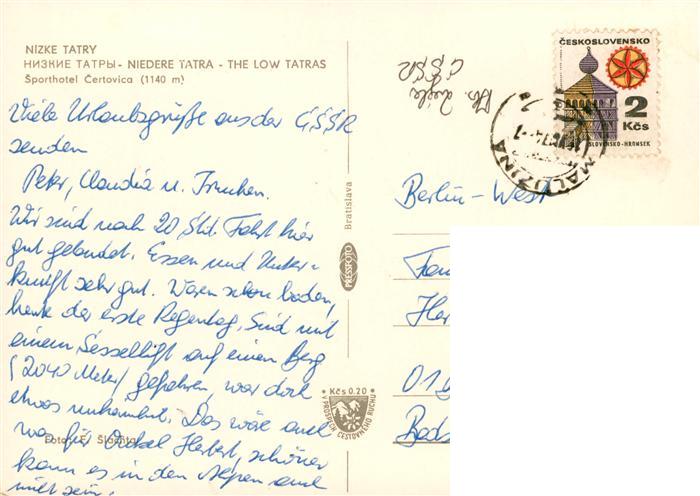 NÍZKE TATRY
НИЗКИЕ ТАТРЫ - NIEDERE TATRA - THE LOW TATRAS
Športhotel Čertovica (1140 m)
Viele Urlaubsgrüße aus der ČSSR
senden
Peter, Claudia u.
Wir sind nach 20 Std. Fahrt hier
gut gelandet. Essen und Unter-
kunft sehr gut. Waren schon baden,
heute der erste Regentag. Sind mit
einem Sessellift auf einen Berg
(2040 Meter) gefahren, war dort
etwas unheimlich. Das wäre auch
was für Onkel Herbert, schöner
kann es in den Alpen auch
nicht sein.
Foto: E. Slachta
Bratislava
PRESSFOTO
Kčs 0.20
V PROSPECH CESTOVNÉHO RUCHU
ČSSR
ČESKOSLOVENSKO
2
Kčs
SLOVENSKO-HRONSEK
MALUŽINÁ
Berlin-West
Fam
Her
01